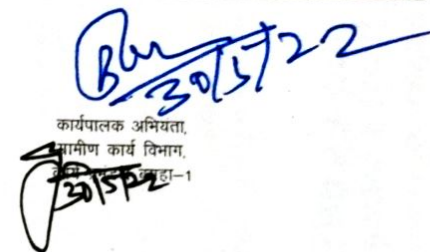 30/5/22
कार्यपालक अभियता,
ग्रामीण कार्य विभाग,
कार्य हा-1
30/5/22